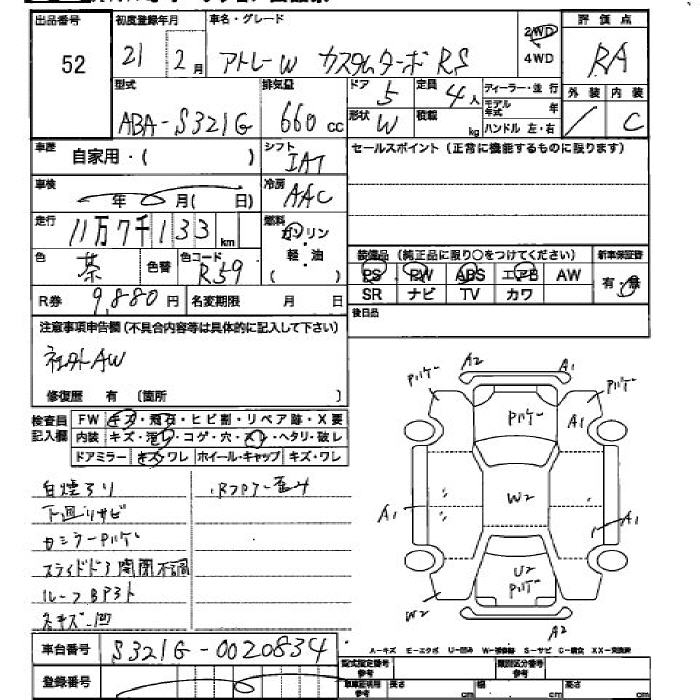 出品番号
52
初度登録年月
21 2月
車名・グレード
アトレーW カスタムターボRS
2WD
4WD
評価点
RA
外装 内装
/ C
型式
ABA-S321G
排気量
660 cc
ドア
5
定員
4人
形状
W
積載
kg
ディーラー・並行
モデル年式 年
ハンドル 左・右
車歴
自家用・( )
シフト
IAT
セールスポイント (正常に機能するものに限ります)
車検
年 月( 日)
冷房
AAC
走行
11万7千133 km
燃料
ガソリン
軽・油
( )
色
茶
色替
色コード
R59
装備品 (純正品に限り○をつけてください)
新車保証書
PS PW ABS エアB AW
有・無
SR ナビ TV カワ
R券 9,880円
名変期限 月 日
後日品
注意事項申告欄 (不具合内容等は具体的に記入して下さい)
社外AW
修復歴 有 〔箇所 〕
検査員
記入欄
FW キズ・飛石・ヒビ割・リペア跡・X要
内装 キズ・汚レ・コゲ・穴・スレ・ヘタリ・破レ
ドアミラー キズ・ワレ ホイール・キャップ キズ・ワレ
白煙アリ
下回リサビ
スライドドア開閉不調
A2
A1
A1
A1
A1
W2
U2
W2
A2
車台番号
S321G-0020834
A-キズ E-エクボ U-凹み W-補修跡 S-サビ C-腐食 XX-交換済
登録番号
型式指定番号
参考
類別区分番号
参考
長さ cm
幅 cm
高さ cm